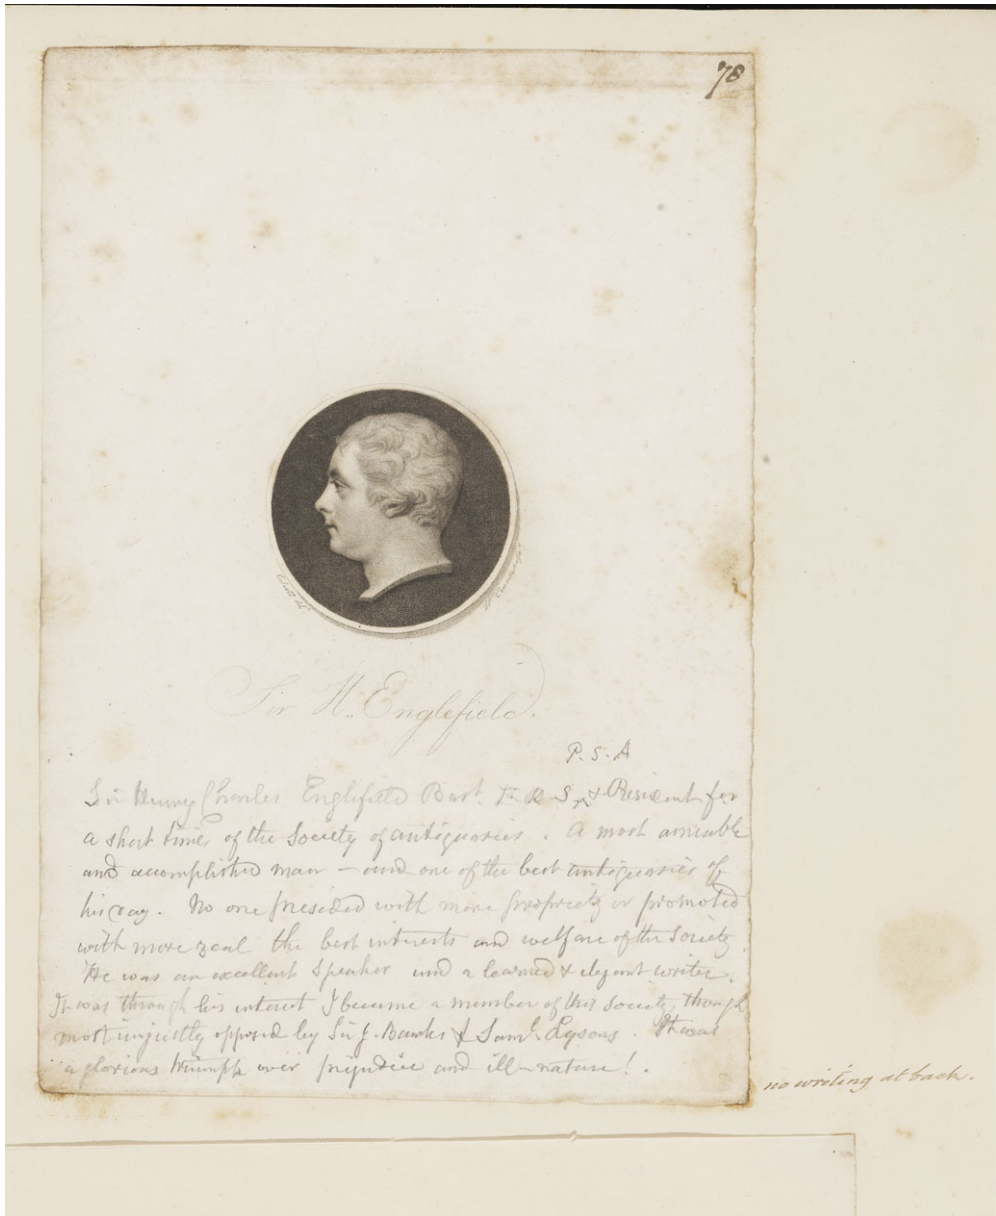 78
Sir H. Englefield.
P. S. A
Sir Henry Charles Englefield Bart. F. R S, & President for
a short time, of the Society of antiquaries. A most amiable
and accomplished man - and one of the best antiquaries of
his day. No one presided with more propriety or promoted
with more zeal the best interests and welfare of the Society.
He was an excellent speaker and a learned & elegant writer.
It was through his interest I became a member of this Society, though
most unjustly opposed by Sir J. Banks & Saml. Lysons. It was
a glorious triumph over prejudice and ill-nature!.
no writing at back.